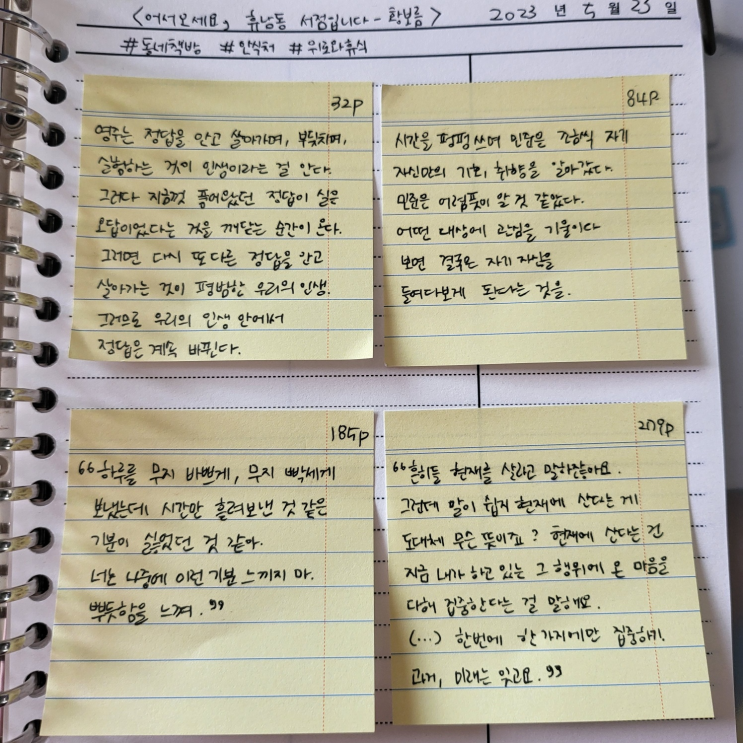 <어서오세요, 휴남동 서점입니다 - 황보름> 2023 년 5 월 25 일
#동네책방 #안식처 #위로와휴식
32p
영주는 정답을 안고 살아가며, 부딪치며,
실험하는 것이 인생이라는 걸 안다.
그러다 지금껏 품어왔던 정답이 실은
오답이었다는 것을 깨닫는 순간이 온다.
그러면 다시 또 다른 정답을 안고
살아가는 것이 평범한 우리의 인생.
그러므로 우리의 인생 안에서
정답은 계속 바뀐다.
84p
시간을 펑펑 쓰며 민준은 조금씩 자기
자신만의 기호, 취향을 알아갔다.
민준은 어렴풋이 알 것 같았다.
어떤 대상에 관심을 기울이다
보면 결국은 자기 자신을
들여다보게 된다는 것을.
185p
“하루를 무지 바쁘게, 무지 빡세게
보냈는데 시간만 흘려보낸 것 같은
기분이 싫었던 것 같아.
너는 나중에 이런 기분 느끼지 마.
뿌듯함을 느껴.”
279p
“흔히들 현재를 살라고 말하잖아요.
그런데 말이 쉽지 현재에 산다는 게
도대체 무슨 뜻이죠? 현재에 산다는 건
지금 내가 하고 있는 그 행위에 온 마음을
다해 집중한다는 걸 말해요.
(...) 한번에 한 가지에만 집중하기.
과거, 미래는 잊고요.”